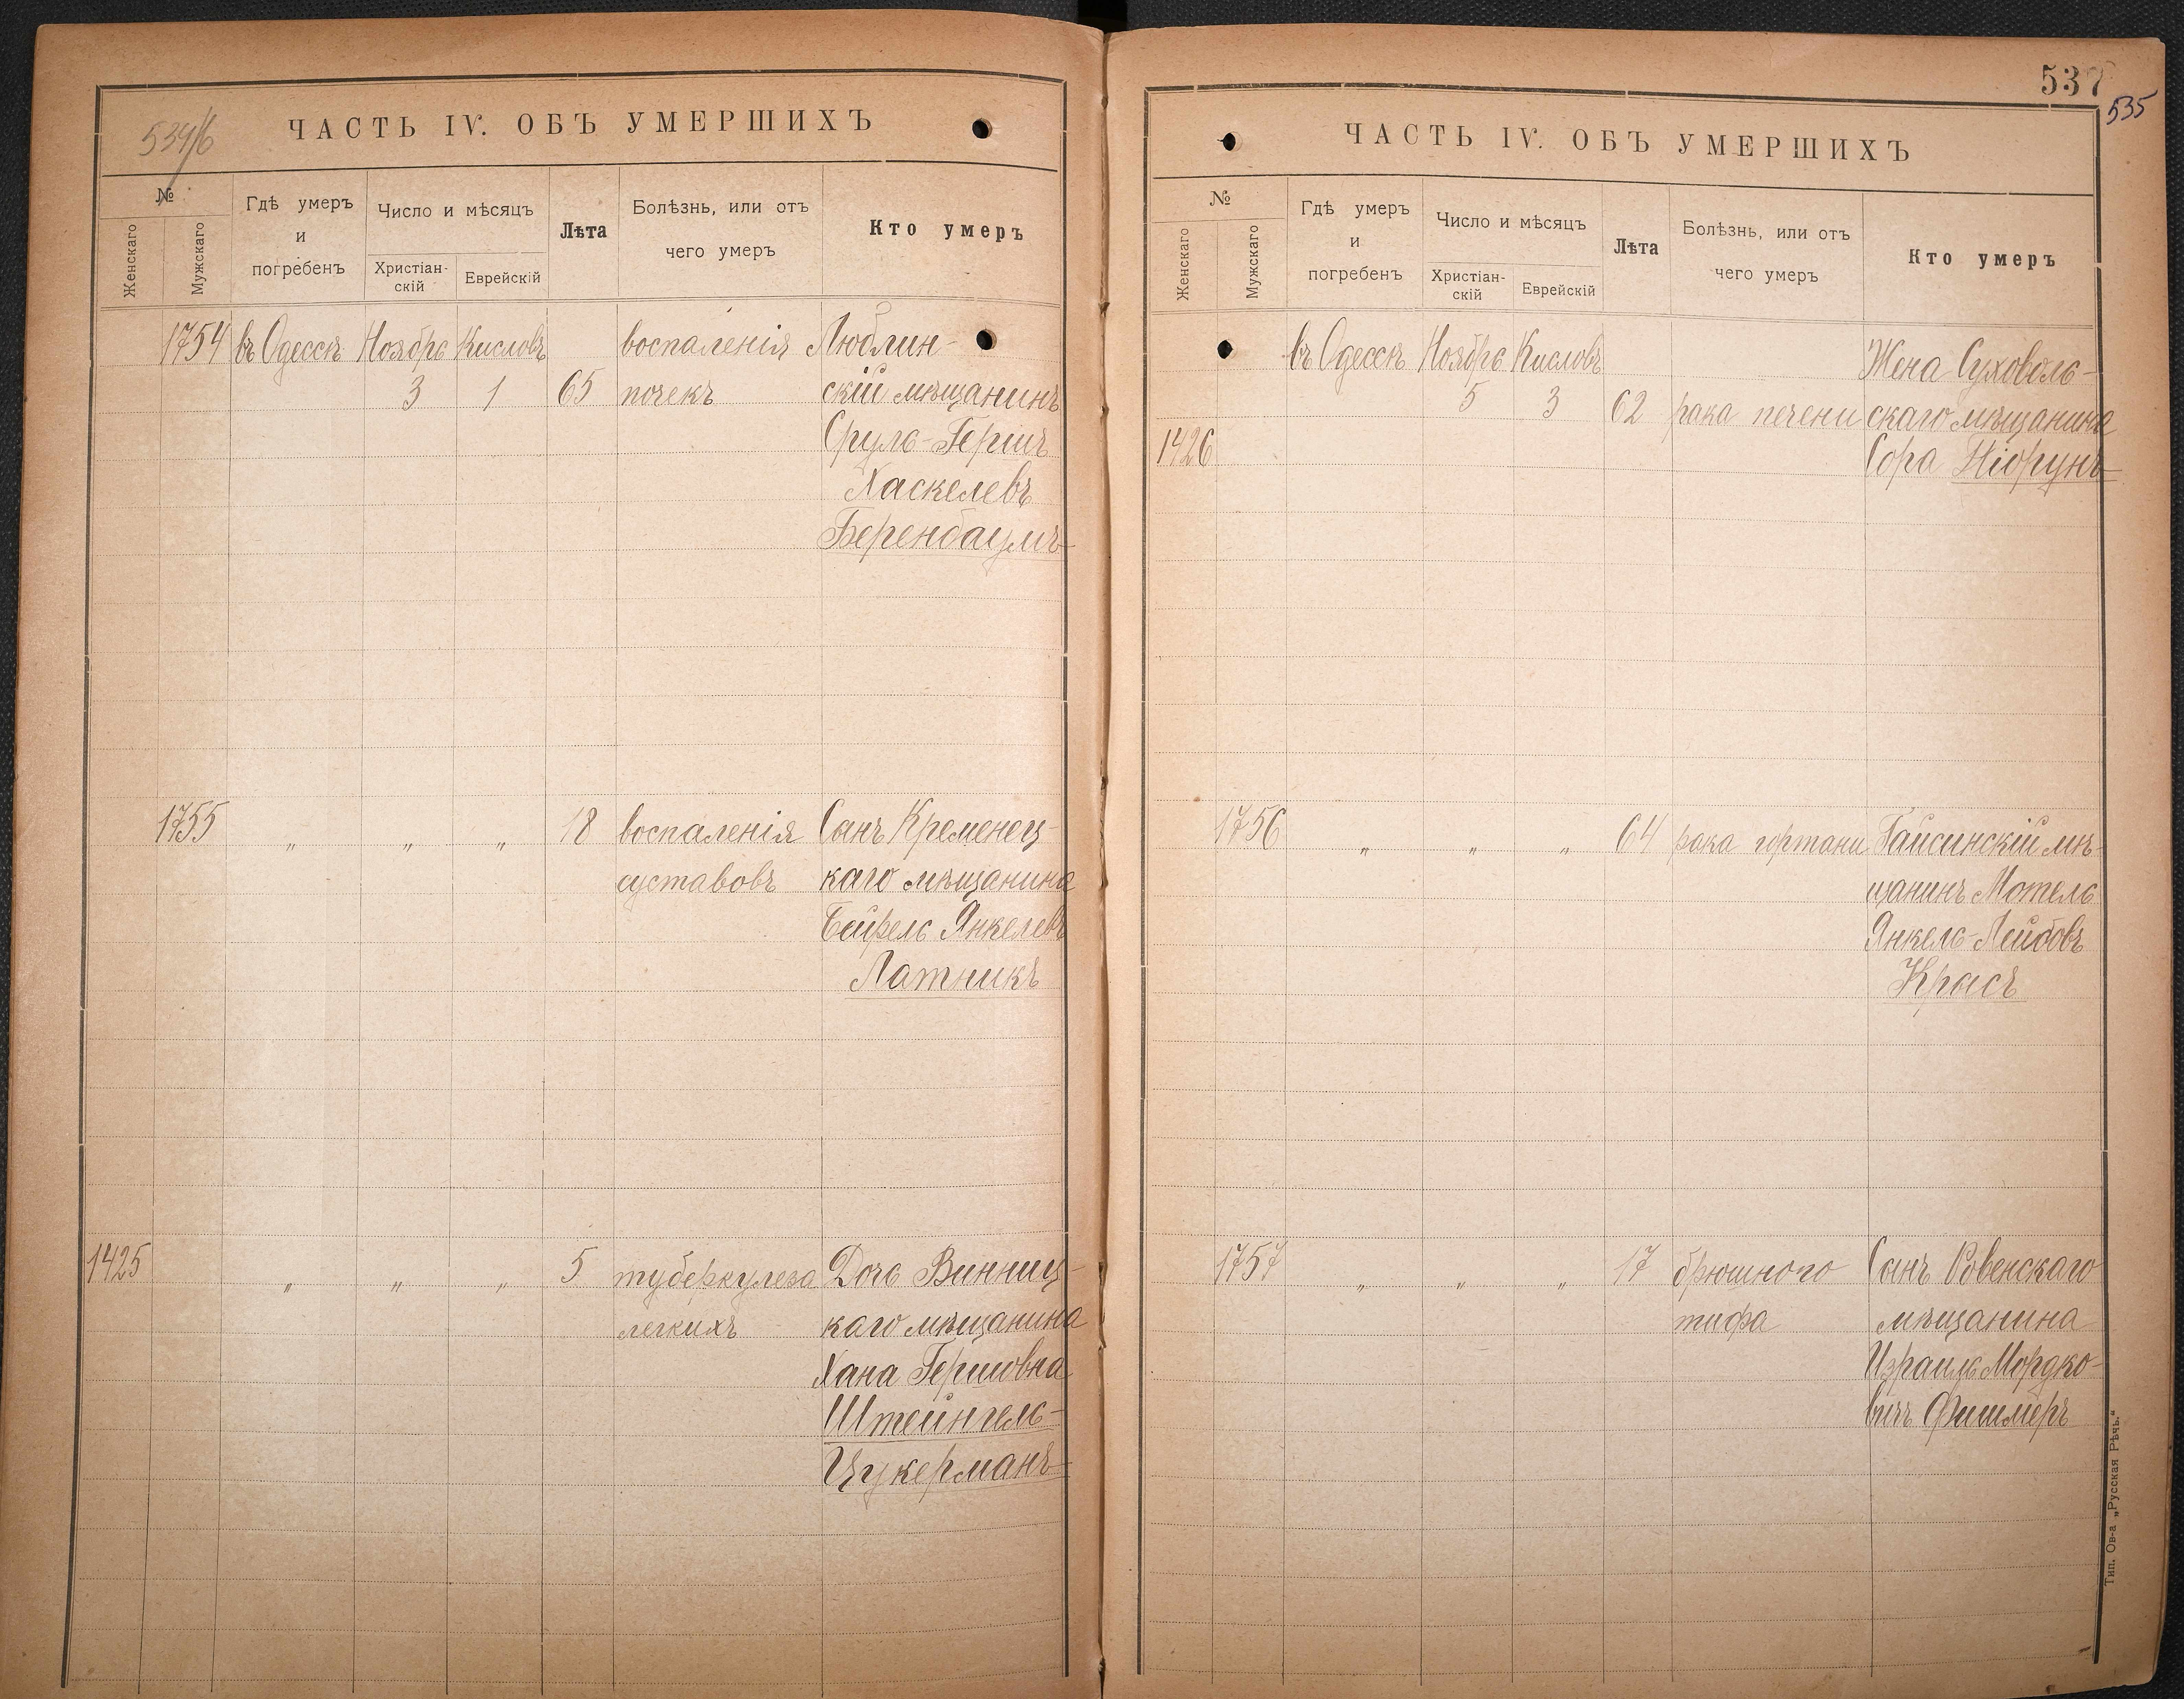 534/б
ЧАСТЬ IV. ОБЪ УМЕРШИХЪ
№
Женскаго
Мужскаго
Гдѣ умеръ
и
погребенъ
Число и мѣсяцъ
Христіан-
скій
Еврейскій
Лѣта
Болѣзнь, или отъ
чего умеръ
Кто умеръ
1754 въ Одессѣ Ноябрь Кисловъ воспаленія Люблин-
3 1 65 почекъ скій мѣщанинъ
Сруль-Гершъ
Хаскелевъ
Беренбаумъ
1755 „ „ „ 18 воспаленія Сынъ Кременец-
суставовъ каго мѣщанина
Бейрель Янкелевъ
Латникъ
1425 „ „ „ 5 туберкулеза Дочь Винниц-
легкихъ каго мѣщанина
Хана Гершовна
Штейнгель-
Цукерманъ
537
535
ЧАСТЬ IV. ОБЪ УМЕРШИХЪ
№
Женскаго
Мужскаго
Гдѣ умеръ
и
погребенъ
Число и мѣсяцъ
Христіан-
скій
Еврейскій
Лѣта
Болѣзнь, или отъ
чего умеръ
Кто умеръ
въ Одессѣ Ноябрь Кисловъ Жена Суховоль-
5 3 62 рака печени скаго мѣщанина
1426 Сора Ніорунъ
1756 „ „ „ 64 рака гортани Гайсинскій мѣ-
щанинъ Мотель
Янкель-Лейбовъ
Крысъ
1757 „ „ „ 17 брюшного Сынъ Ровенскаго
тифа мѣщанина
Израиль Мордко-
вичъ Фишмеръ
Тип. Ов-а „Русская Рѣчь.“